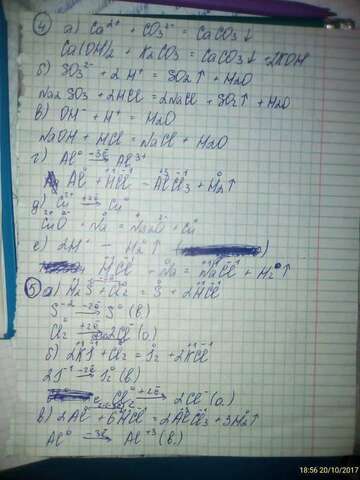 ④ а) Ca²⁺ + CO₃²⁻ = CaCO₃↓
Ca(OH)₂ + K₂CO₃ = CaCO₃↓ + 2KOH
б) SO₃²⁻ + 2H⁺ = SO₂↑ + H₂O
Na₂SO₃ + 2HCl = 2NaCl + SO₂↑ + H₂O
в) OH⁻ + H⁺ = H₂O
NaOH + HCl = NaCl + H₂O
г) Al⁰ −3ē→ Al³⁺
Al⁰ + H⁺¹Cl⁻¹ = Al⁺³Cl⁻¹₃ + H₂⁰↑
д) Cu²⁺ +2ē→ Cu⁰
Cu²⁺O²⁻ + Na⁰ = Na₂O²⁻ + Cu⁰
е) 2H⁺ − H₂⁰↑
H⁺¹Cl⁻¹ + Na⁰ = Na⁺¹Cl⁻¹ + H₂⁰↑
⑤ а) H₂S⁻² + Cl₂⁰ = S⁰ + 2HCl⁻¹
S⁻² −2ē→ S⁰ (в.)
Cl₂⁰ +2ē→ 2Cl⁻ (о.)
б) 2K⁺¹I⁻¹ + Cl₂⁰ = I₂⁰ + 2K⁺¹Cl⁻¹
2I⁻¹ −2ē→ I₂⁰ (в)
Cl₂⁰ +2ē→ 2Cl⁻ (о.)
в) 2Al⁰ + 6H⁺¹Cl⁻¹ = 2Al⁺³Cl⁻¹₃ + 3H₂⁰↑
Al⁰ −3ē→ Al⁺³ (в.)
18:56 20/10/2017